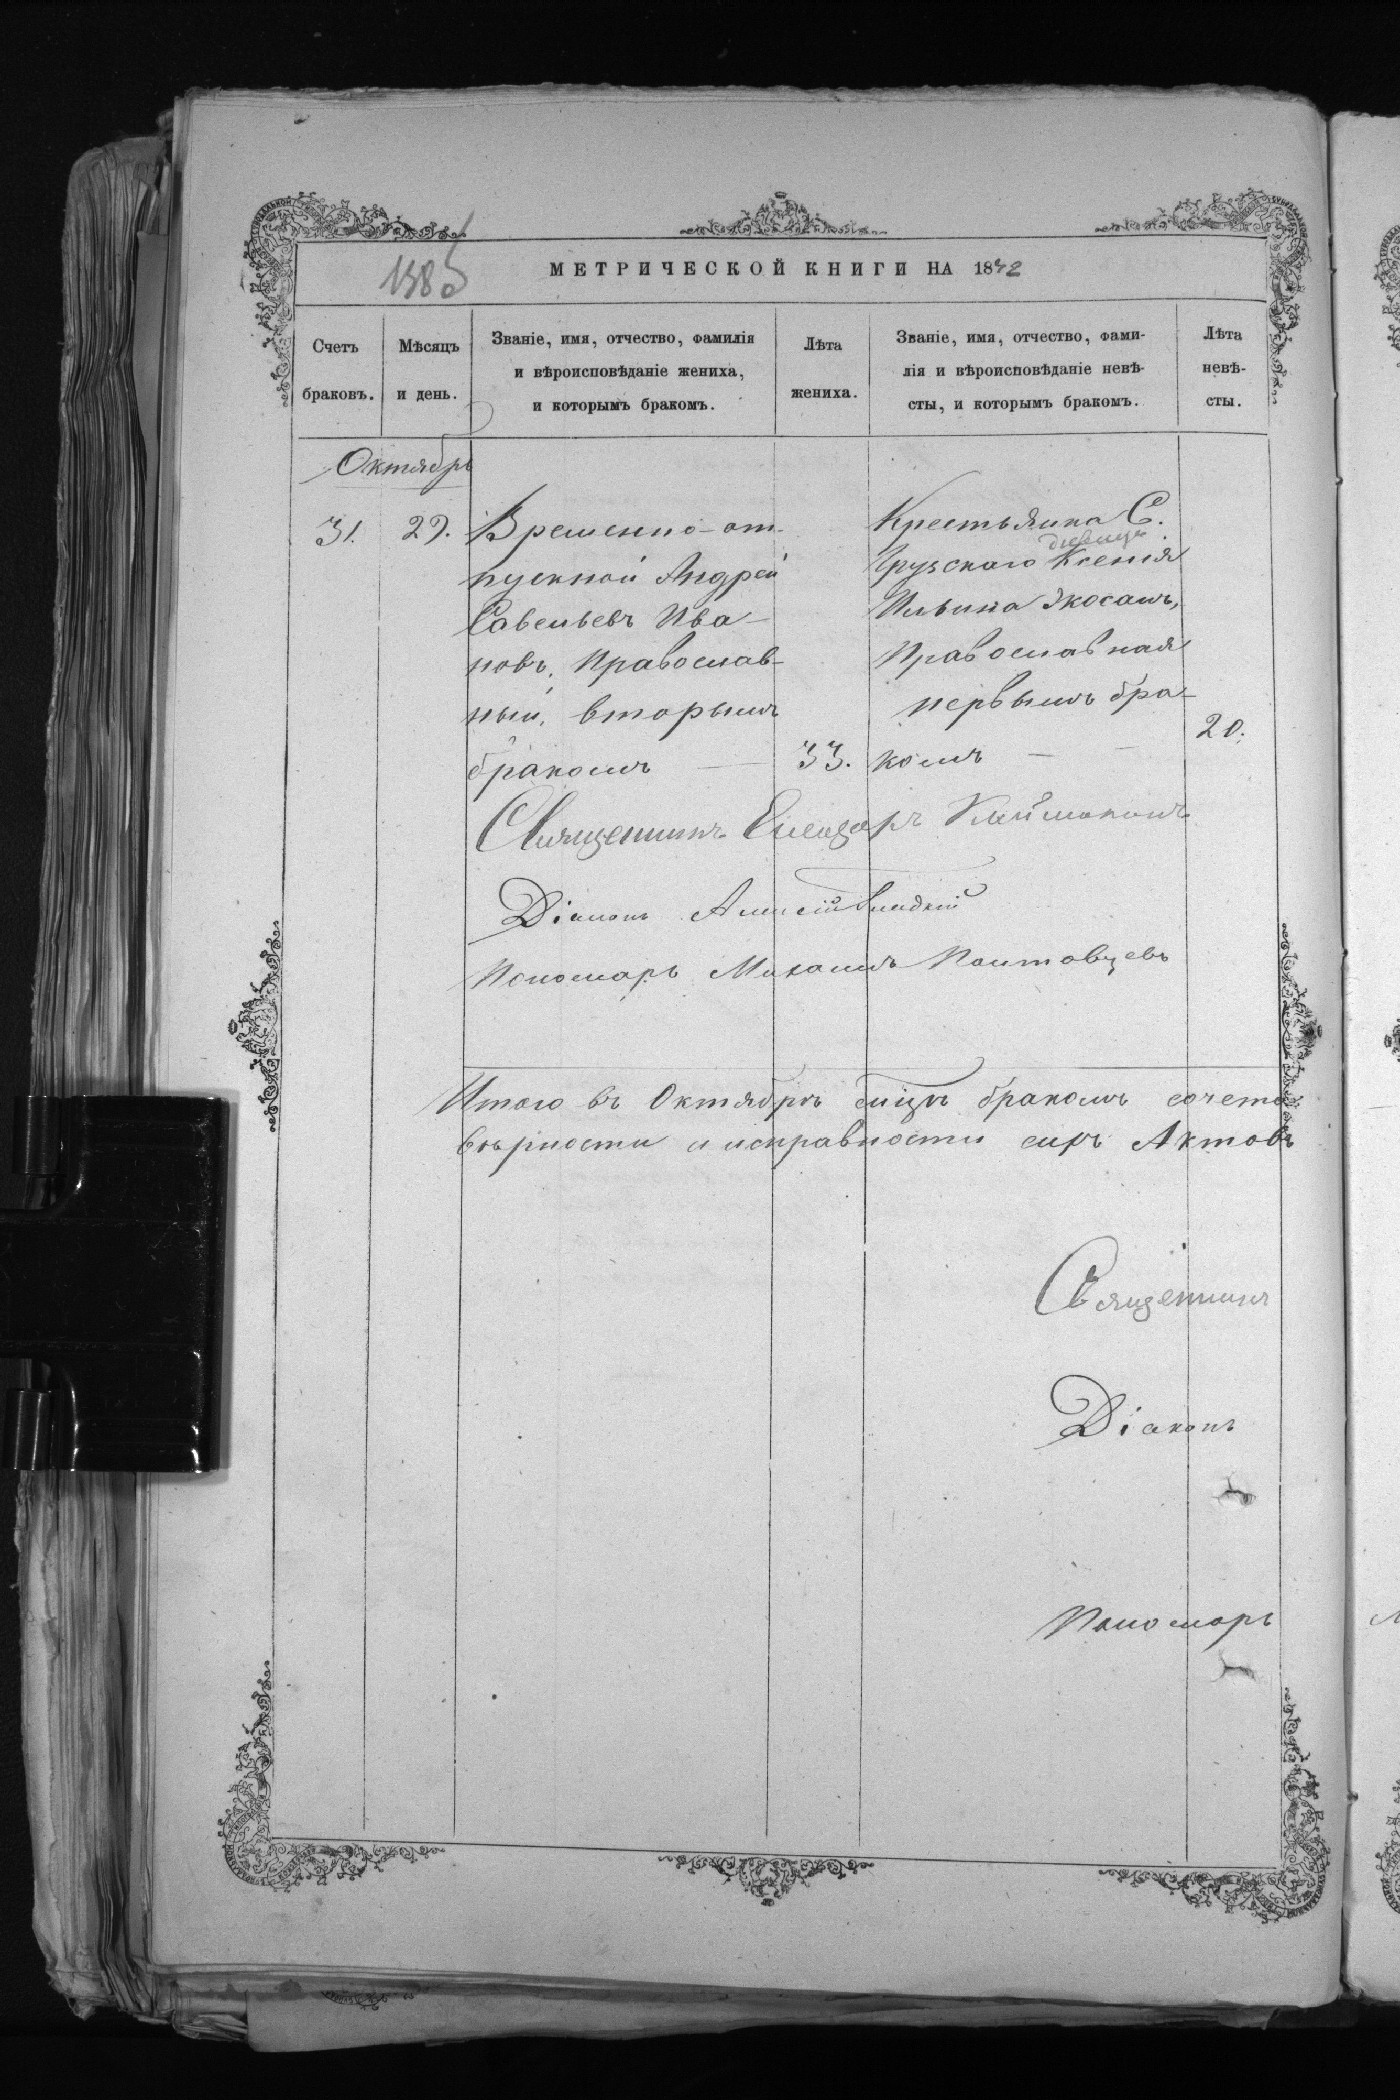 1385
МЕТРИЧЕСКОЙ КНИГИ НА 1872
Счетъ браковъ.
Мѣсяцъ и день.
Званіе, имя, отчество, фамилія
и вѣроисповѣданіе жениха,
и которымъ бракомъ.
Лѣта жениха.
Званіе, имя, отчество, фами-
лія и вѣроисповѣданіе невѣ-
сты, и которымъ бракомъ.
Лѣта невѣ-
сты.
Октябрь
31. 29.
Временно-от-
пускной Андрей
Савельевъ Ива-
новъ, Православ-
ный, вторымъ
бракомъ — 33.
Крестьянка С.
девица
Грузскаго Ксенія
Ильина
Православная
первымъ бра-
комъ — — 20.
Священникъ Елеазаръ
Діаконъ Алексій
Пономарь Михаилъ Полтовцевъ
Итого въ Октябрѣ сихъ бракомъ сочета
вѣрности и исправности сихъ Актовъ
Священникъ
Діаконъ
Пономарь